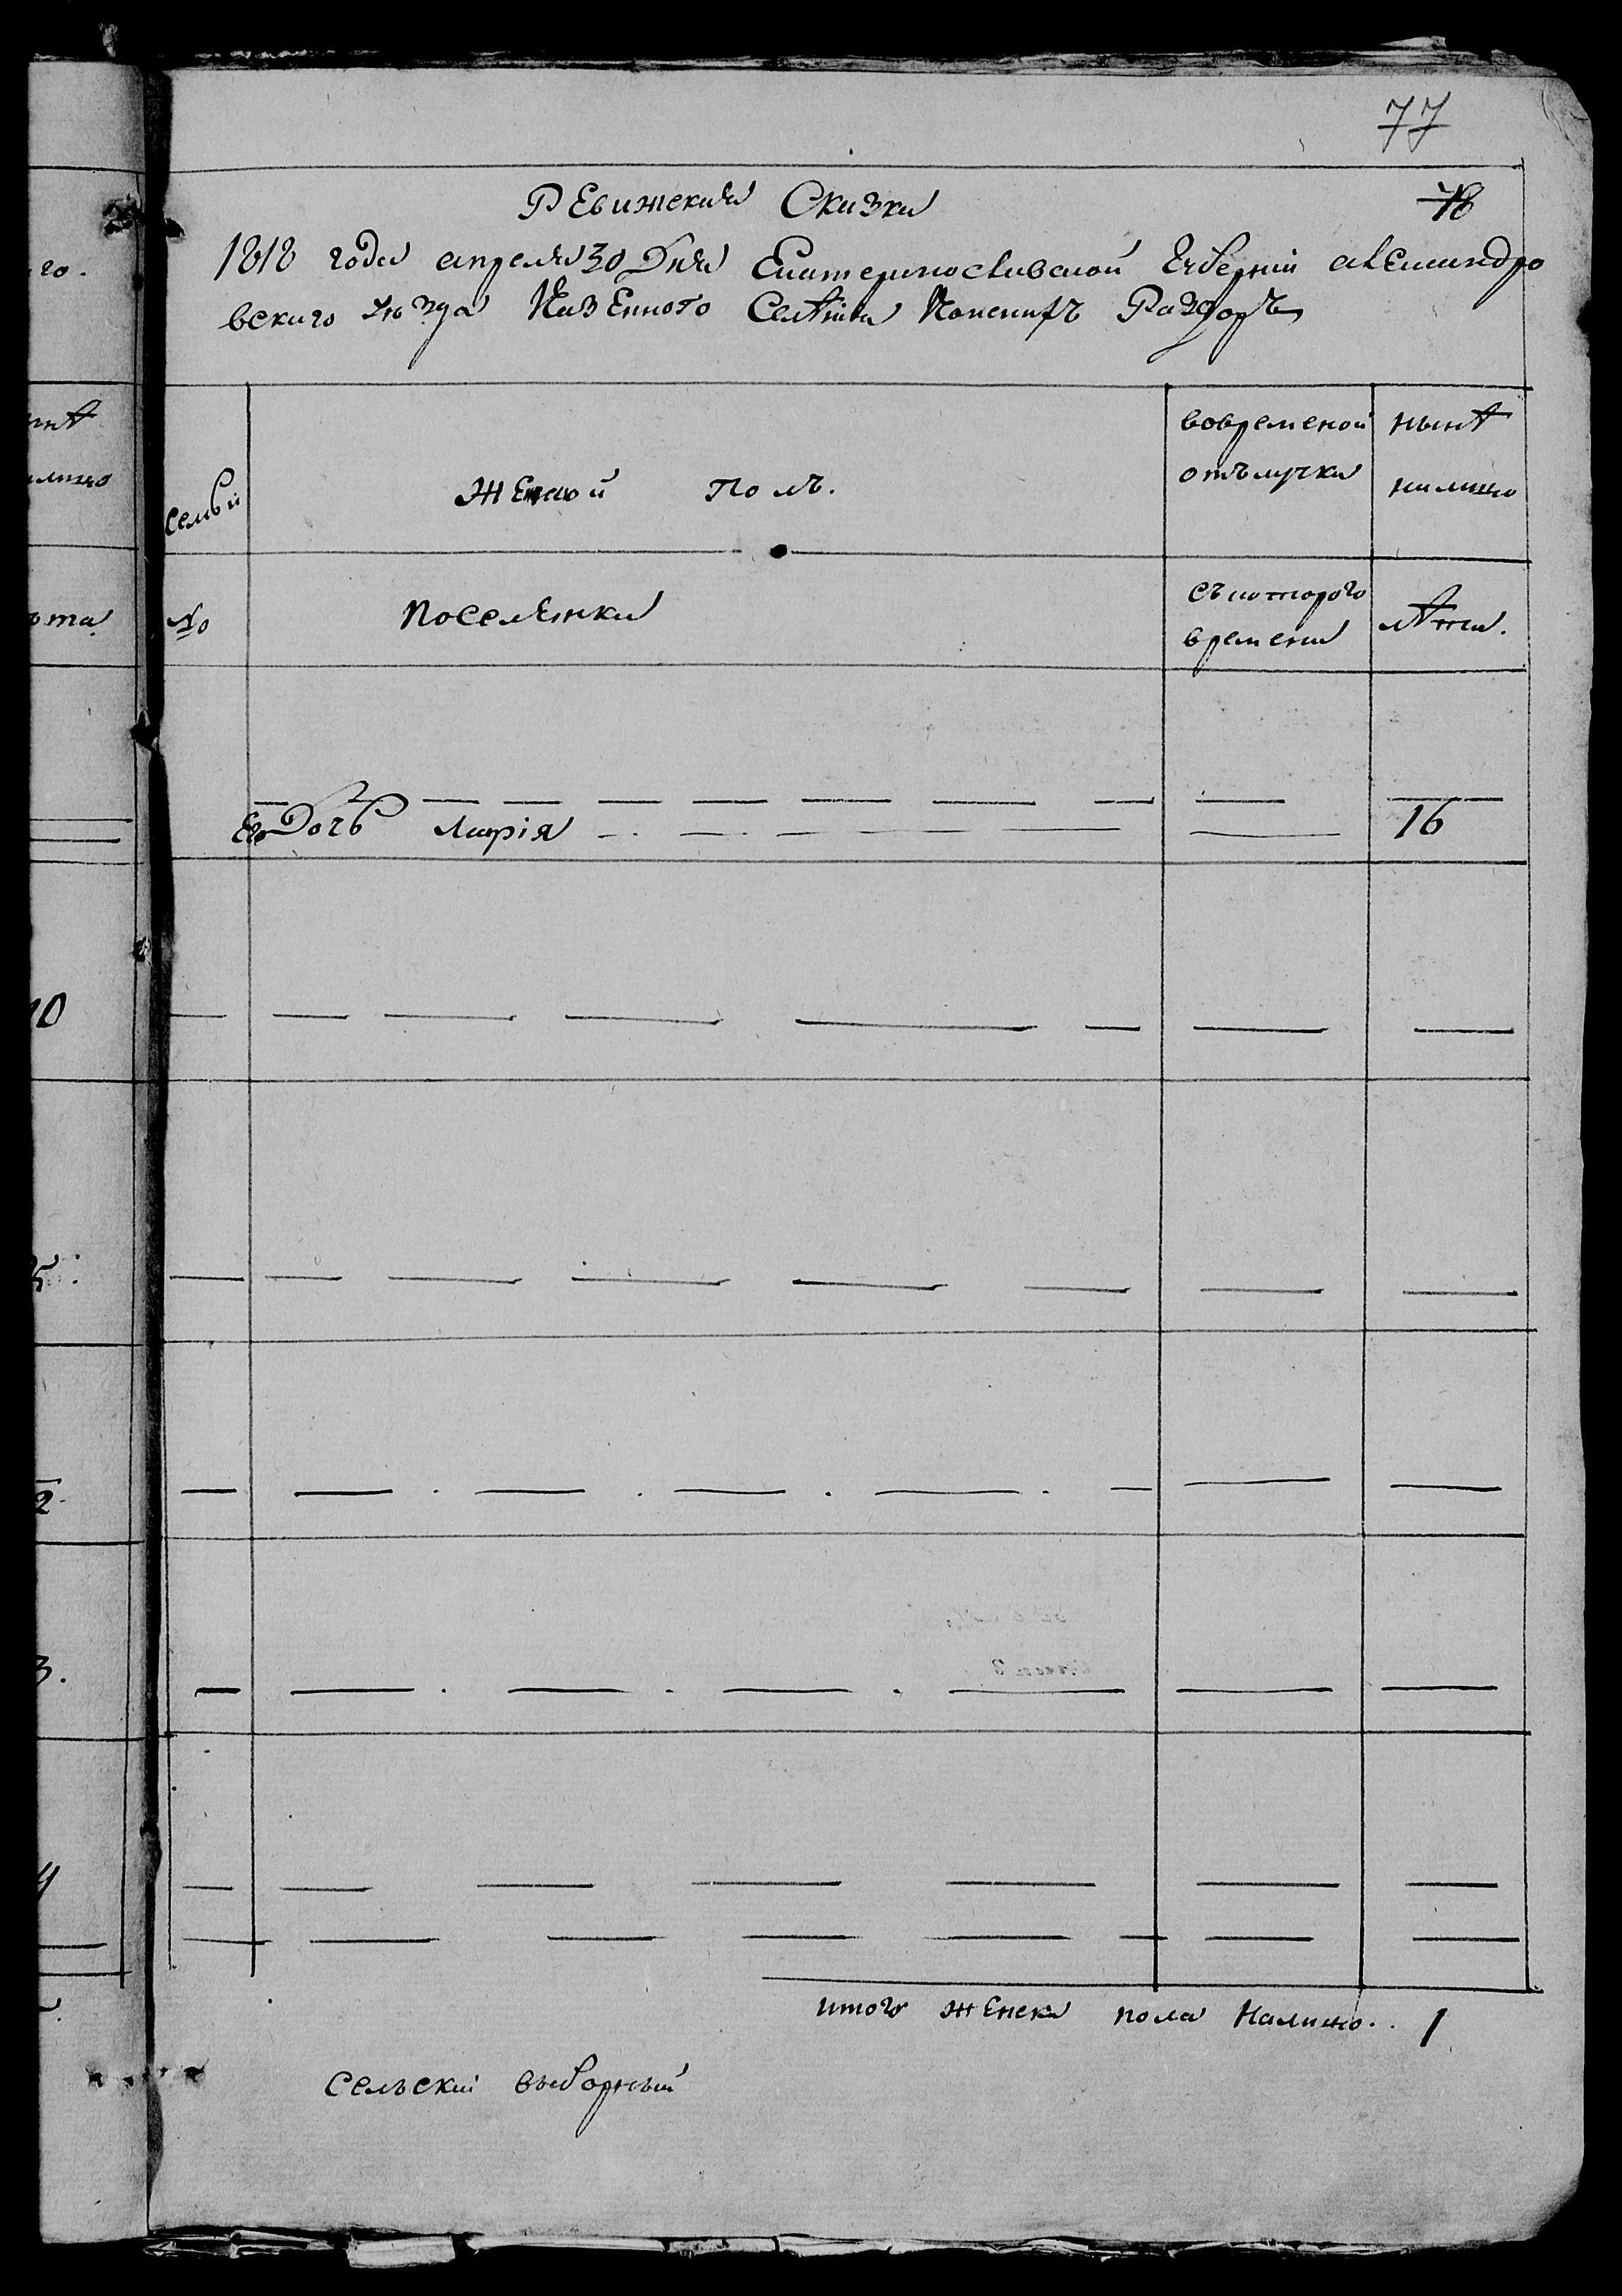 77
78
Ревижская Сказка
1818 года апреля 30 Дня Екатеринославской Губернии александро
вскаго уезда Казенного Селения Копаниъ Раздоръ
Семьи
Женской полъ.
вовременой
отълучки
нынѣ
налицо
№
поселенки
съкоторого
времени
лѣта.
Его Дочь Марія
16
итого женска пола Налицо.. 1
Сельский выборный
го.
10
2.
3.
4